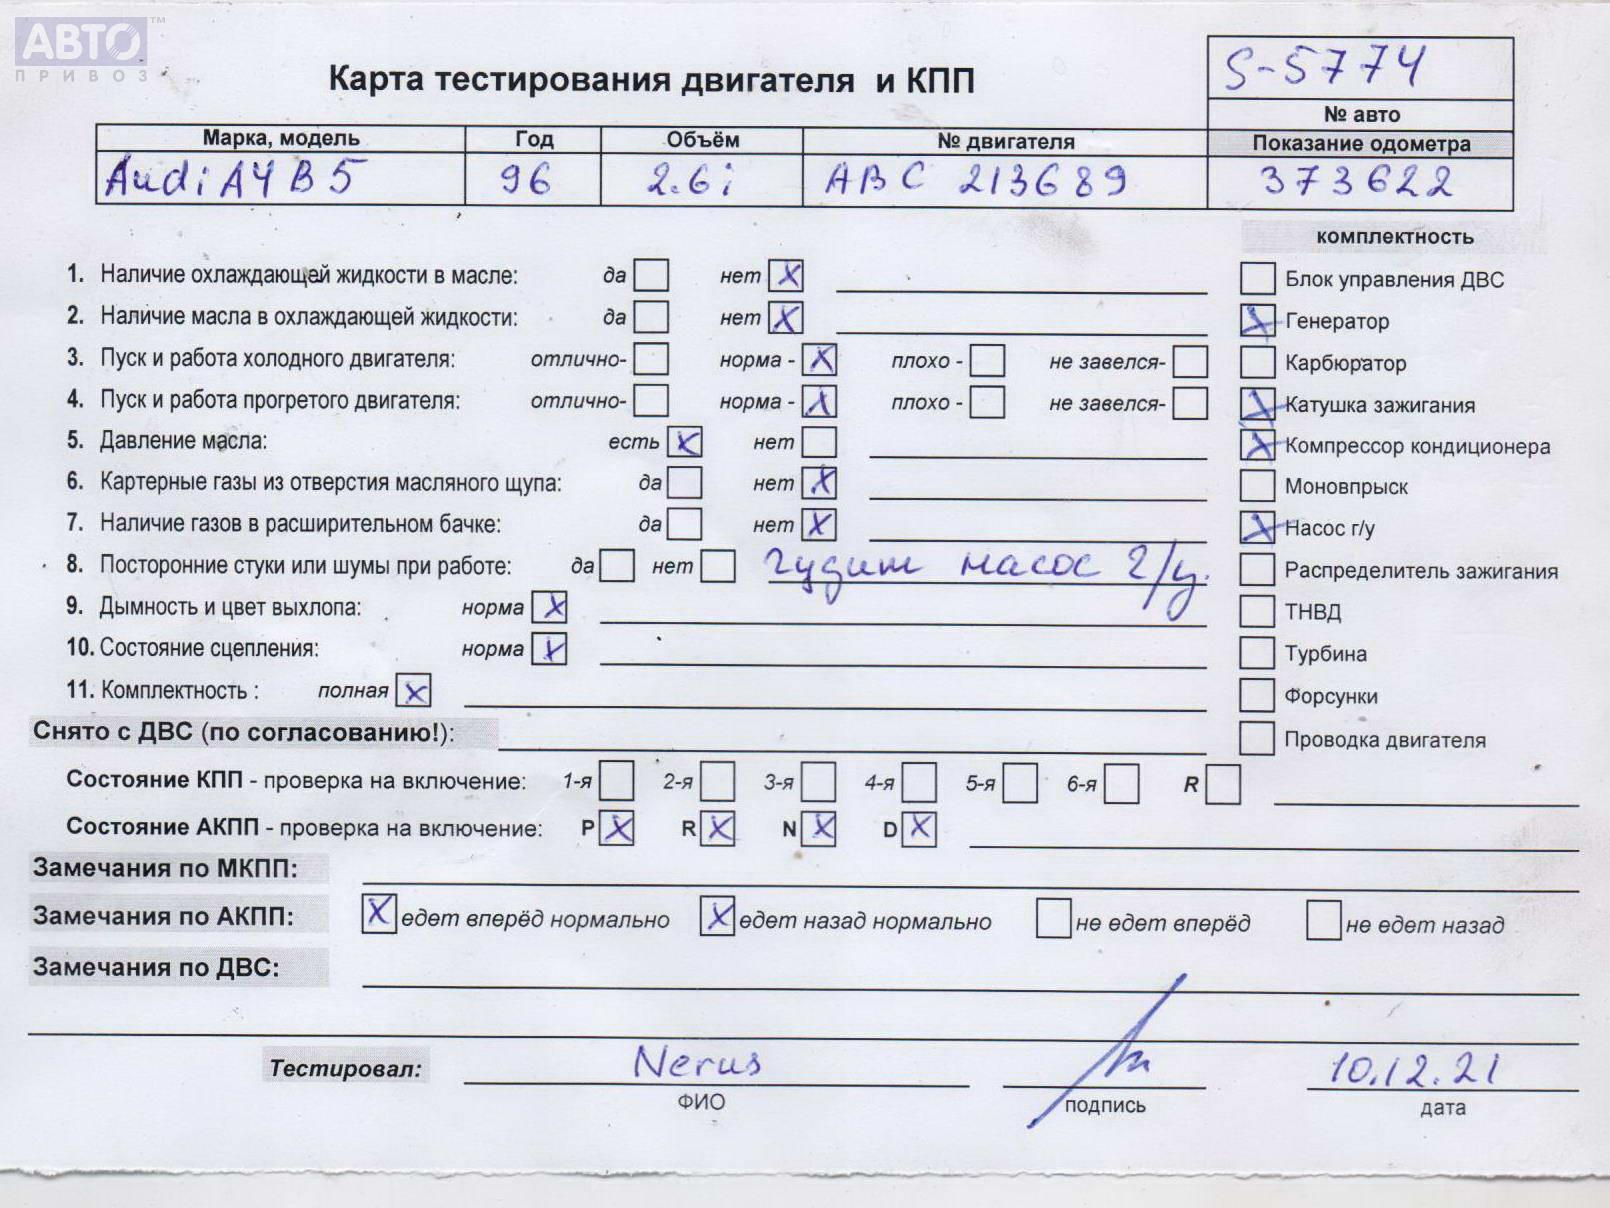 АВТО™
ПРИВОЗ
Карта тестирования двигателя и КПП
S-5774
№ авто
Марка, модель Год Объём № двигателя Показание одометра
Audi A4 B5 96 2.6i ABC 213689 373622
комплектность
1. Наличие охлаждающей жидкости в масле: да нет X
Блок управления ДВС
2. Наличие масла в охлаждающей жидкости: да нет X
X Генератор
3. Пуск и работа холодного двигателя: отлично- норма - X плохо - не завелся-
Карбюратор
4. Пуск и работа прогретого двигателя: отлично- норма - X плохо - не завелся-
X Катушка зажигания
5. Давление масла: есть X нет
X Компрессор кондиционера
6. Картерные газы из отверстия масляного щупа: да нет X
Моновпрыск
7. Наличие газов в расширительном бачке: да нет X
X Насос г/у
8. Посторонние стуки или шумы при работе: да нет гудит насос г/у.
Распределитель зажигания
9. Дымность и цвет выхлопа: норма X
ТНВД
10. Состояние сцепления: норма X
Турбина
11. Комплектность : полная X
Форсунки
Снято с ДВС (по согласованию!):
Проводка двигателя
Состояние КПП - проверка на включение: 1-я 2-я 3-я 4-я 5-я 6-я R
Состояние АКПП - проверка на включение: P X R X N X D X
Замечания по МКПП:
Замечания по АКПП: X едет вперёд нормально X едет назад нормально не едет вперёд не едет назад
Замечания по ДВС:
Тестировал: Nerus 10.12.21
ФИО подпись дата